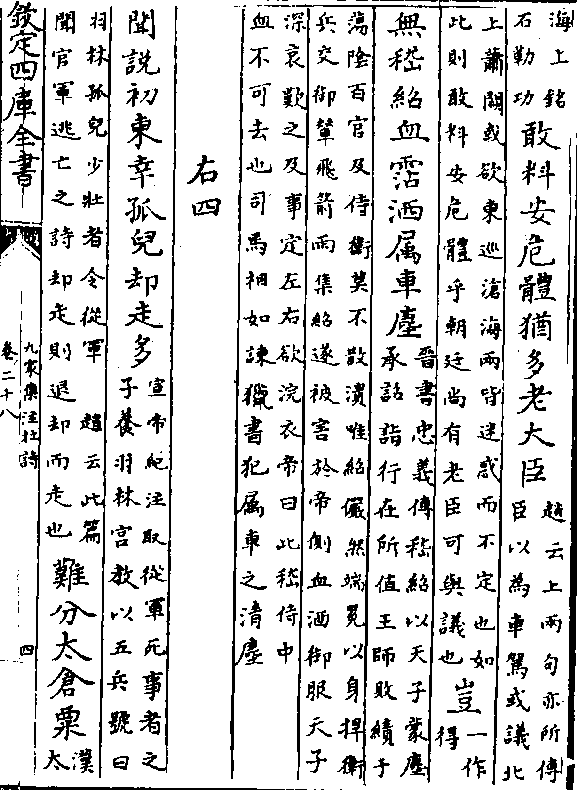 海上銘
石勒功敢料安危體猶多老大臣趙云上兩句亦所傳
臣以為車駕或議北
上蕭關或欲東巡滄海兩皆迷惑而不定也如
此則敢料安危體乎朝廷尚有老臣可與議也豈一作
得
無嵇紹血霑洒属車塵晉書忠義傳嵇紹以天子蒙塵
承詔詣行在所值王師敗績于
蕩陰百官及侍衛莫不散潰唯紹儼然端冕以身捍衛
兵交御輦飛箭雨集紹遂被害於帝側血洒御服天子
深哀歎之及事定左右欲浣衣帝曰此嵇侍中
血不可去也司馬相如諫獵書犯属車之清塵
右四
聞說初東幸孤兒却走多宣帝紀注取從軍死事者之
子養羽林宫教以五兵號曰
羽林孤兒少壯者令從軍趙云此篇
聞官軍逃亡之詩却走則退却而走也難分太倉粟漢
太
欽定四庫全書
九家集注杜詩
卷二十八
四